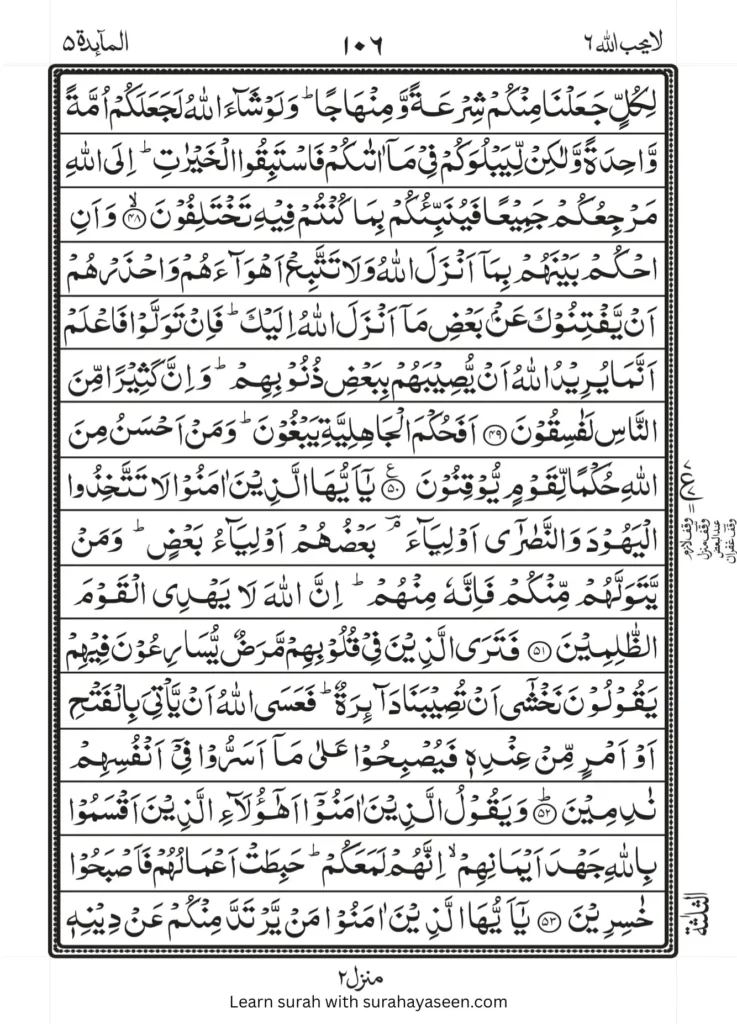 لايحب الله ٦ ١٠٦ المآىِٕدة ٥
لِكُلٍّ جَعَلْنَا مِنْكُمْ شِرْعَةً وَّمِنْهَاجًا ؕ وَلَوْ شَآءَ اللّٰهُ لَجَعَلَكُمْ اُمَّةً
وَّاحِدَةً وَّلٰكِنْ لِّيَبْلُوَكُمْ فِيْ مَاۤ اٰتٰىكُمْ فَاسْتَبِقُوا الْخَيْرٰتِ ؕ اِلَى اللّٰهِ
مَرْجِعُكُمْ جَمِيْعًا فَيُنَبِّئُكُمْ بِمَا كُنْتُمْ فِيْهِ تَخْتَلِفُوْنَ ۙ‏﴿۴۸﴾ وَاَنِ
احْكُمْ بَيْنَهُمْ بِمَاۤ اَنْزَلَ اللّٰهُ وَلَا تَتَّبِعْ اَهْوَآءَهُمْ وَاحْذَرْهُمْ
اَنْ يَّفْتِنُوْكَ عَنْۢ بَعْضِ مَاۤ اَنْزَلَ اللّٰهُ اِلَيْكَ ؕ فَاِنْ تَوَلَّوْا فَاعْلَمْ
اَنَّمَا يُرِيْدُ اللّٰهُ اَنْ يُّصِيْبَهُمْ بِبَعْضِ ذُنُوْبِهِمْ ؕ وَاِنَّ كَثِيْرًا مِّنَ
النَّاسِ لَفٰسِقُوْنَ ﴿۴۹﴾ اَفَحُكْمَ الْجَاهِلِيَّةِ يَبْغُوْنَ ؕ وَمَنْ اَحْسَنُ مِنَ
اللّٰهِ حُكْمًا لِّقَوْمٍ يُّوْقِنُوْنَ ﴿۵۰﴾ ع يٰۤاَيُّهَا الَّذِيْنَ اٰمَنُوْا لَا تَتَّخِذُوا
الْيَهُوْدَ وَالنَّصٰرٰۤى اَوْلِيَآءَ ۘؔ بَعْضُهُمْ اَوْلِيَآءُ بَعْضٍ ؕ وَمَنْ
يَّتَوَلَّهُمْ مِّنْكُمْ فَاِنَّهٗ مِنْهُمْ ؕ اِنَّ اللّٰهَ لَا يَهْدِى الْقَوْمَ
الظّٰلِمِيْنَ ﴿۵۱﴾ فَتَرَى الَّذِيْنَ فِيْ قُلُوْبِهِمْ مَّرَضٌ يُّسَارِعُوْنَ فِيْهِمْ
يَقُوْلُوْنَ نَخْشٰۤى اَنْ تُصِيْبَنَا دَآىِٕرَةٌ ؕ فَعَسَى اللّٰهُ اَنْ يَّاْتِيَ بِالْفَتْحِ
اَوْ اَمْرٍ مِّنْ عِنْدِهٖ فَيُصْبِحُوْا عَلٰى مَاۤ اَسَرُّوْا فِيْۤ اَنْفُسِهِمْ
نٰدِمِيْنَ ؕ‏﴿۵۲﴾ وَيَقُوْلُ الَّذِيْنَ اٰمَنُوْۤا اَهٰۤؤُلَآءِ الَّذِيْنَ اَقْسَمُوْا
بِاللّٰهِ جَهْدَ اَيْمَانِهِمْ ۙ اِنَّهُمْ لَمَعَكُمْ ؕ حَبِطَتْ اَعْمَالُهُمْ فَاَصْبَحُوْا
خٰسِرِيْنَ ﴿۵۳﴾ يٰۤاَيُّهَا الَّذِيْنَ اٰمَنُوْا مَنْ يَّرْتَدَّ مِنْكُمْ عَنْ دِيْنِهٖ
وقف لازم
وقف منزل
عند البعض
وقف غفران
الثلثة
منزل ٢
Learn surah with surahayaseen.com